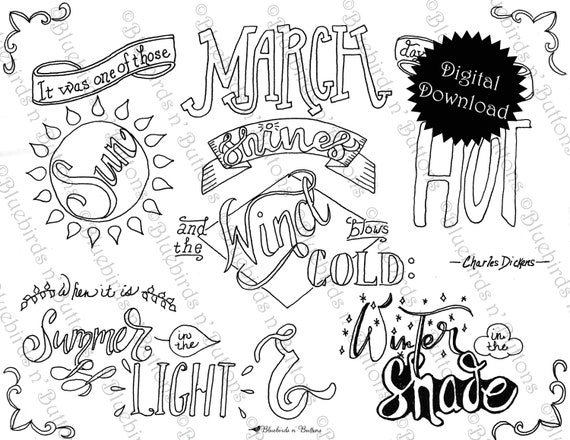 It was one of those
MARCH
da
Digital
Download
Sun
Shines
HOT
and
the
Wind
blows
COLD:
—Charles Dickens—
When it is
Summer
in
the
LIGHT
&
Winter
in
the
Shade
Bluebirds n' Buttons
©Bluebirds n' Buttons